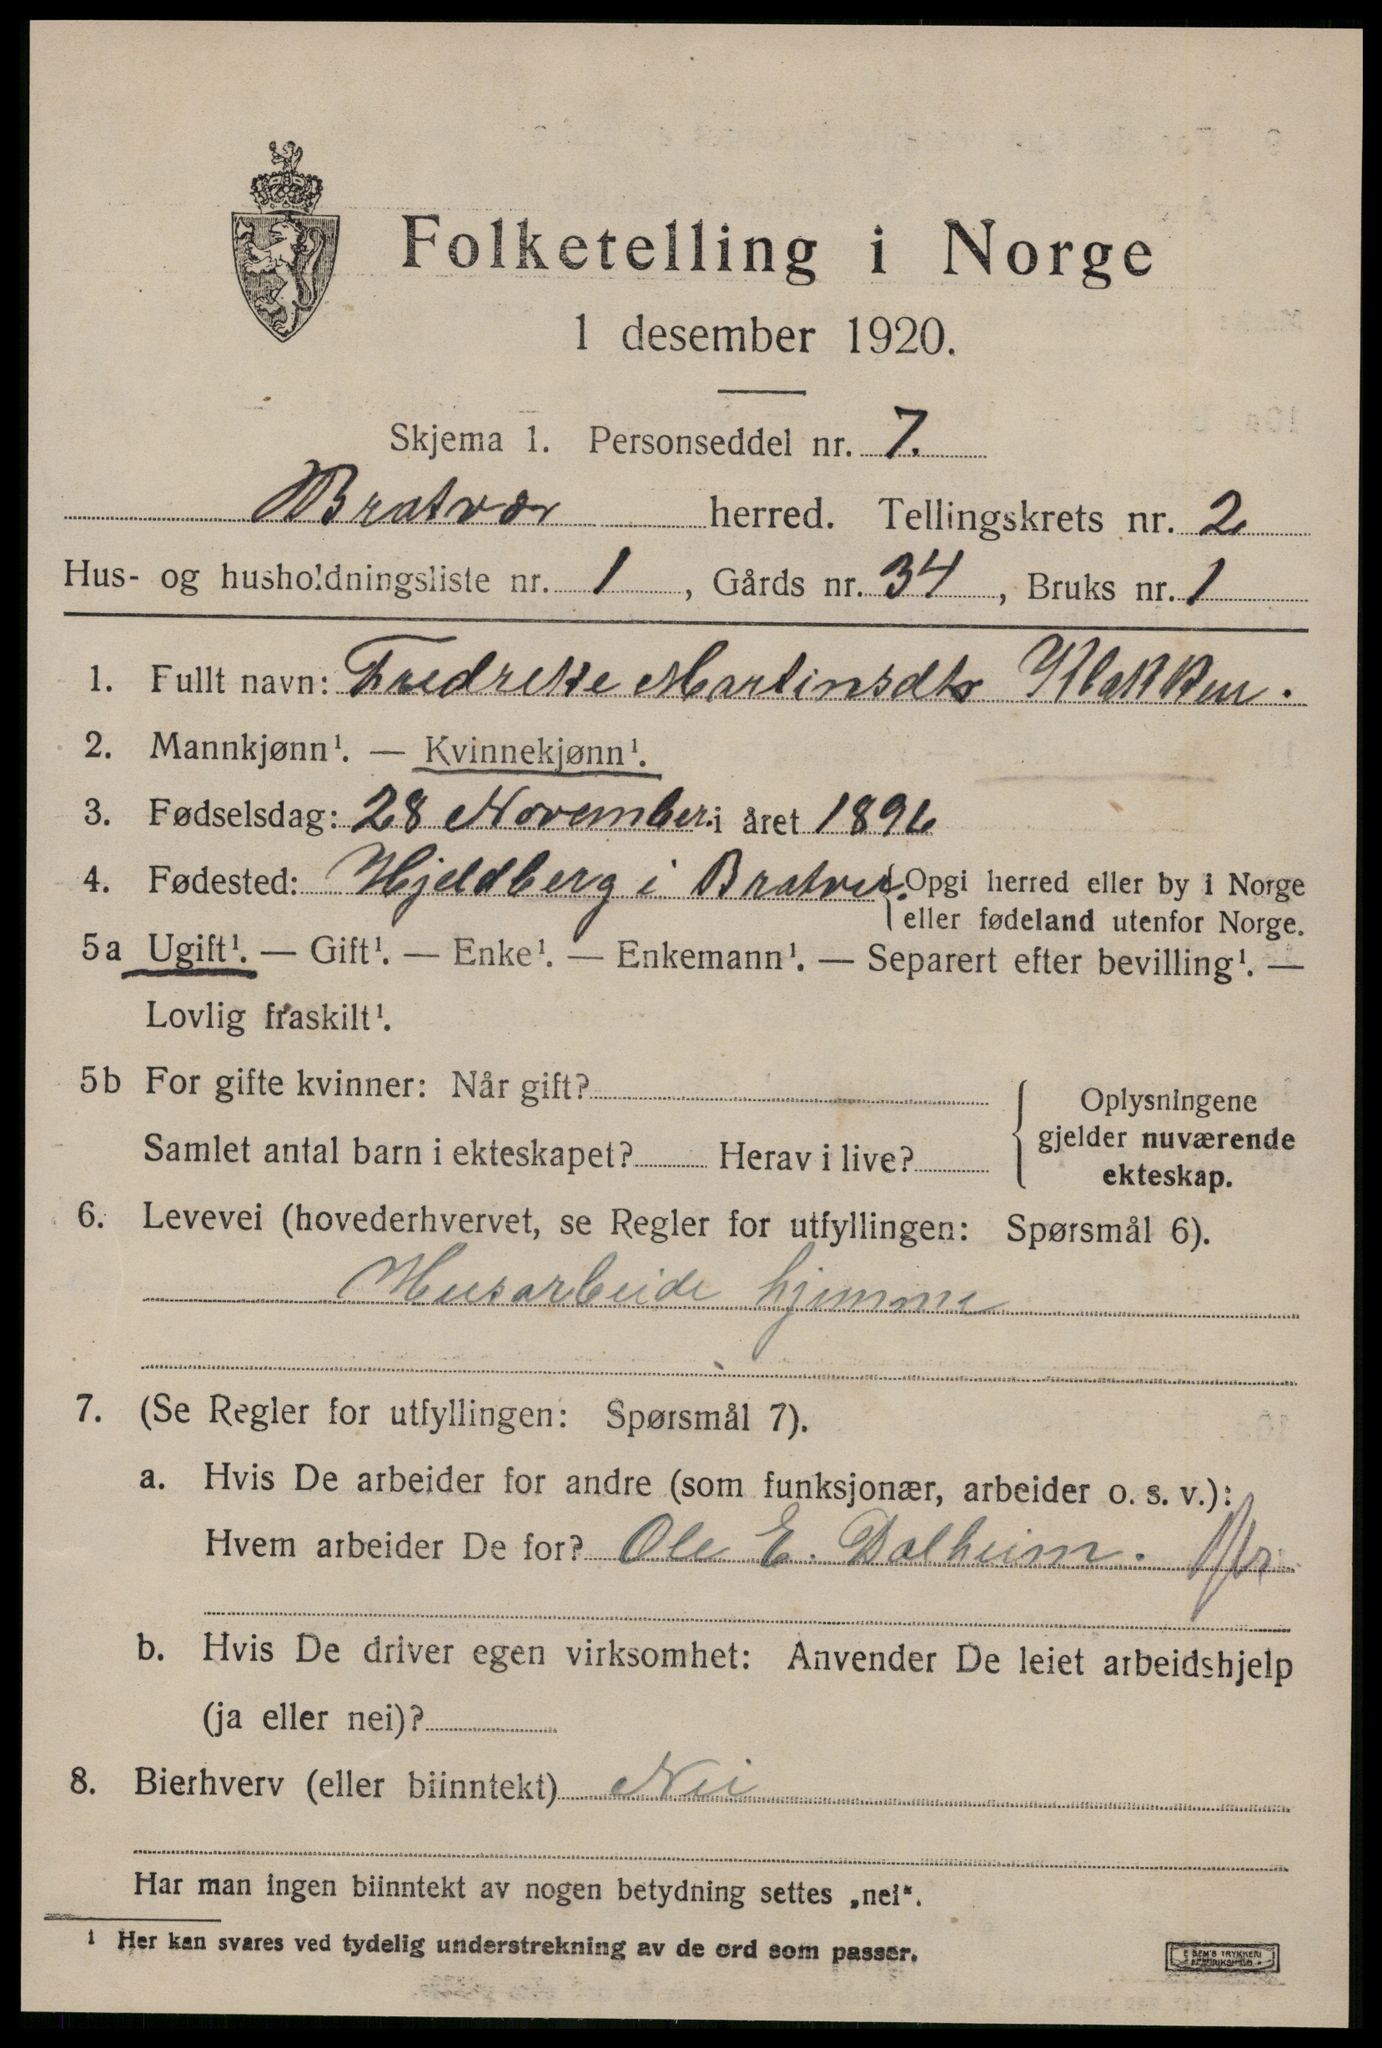 Folketelling i Norge
1 desember 1920.
Skjema 1. Personseddel nr. 7.
Bratvær herred. Tellingskrets nr. 2
Hus- og husholdningsliste nr. 1, Gårds nr. 34, Bruks nr. 1
1. Fullt navn: Fredrikke Martinsdtr Klakken.
2. Mannkjønn¹. — Kvinnekjønn¹.
3. Fødselsdag: 28 November i året 1896
4. Fødested: Hjeldberg i Bratver. { Opgi herred eller by i Norge
eller fødeland utenfor Norge.
5a Ugift¹. — Gift¹. — Enke¹. — Enkemann¹. — Separert efter bevilling¹. —
Lovlig fraskilt¹.
5b For gifte kvinner: Når gift?
Samlet antal barn i ekteskapet? Herav i live?
Oplysningene
gjelder nuværende
ekteskap.
6. Levevei (hovederhvervet, se Regler for utfyllingen: Spørsmål 6).
Husarbeide hjemme
7. (Se Regler for utfyllingen: Spørsmål 7).
a. Hvis De arbeider for andre (som funksjonær, arbeider o. s. v.):
Hvem arbeider De for? Ole E. Dalheim.
b. Hvis De driver egen virksomhet: Anvender De leiet arbeidshjelp
(ja eller nei)?
8. Bierhverv (eller biinntekt) Nei
Har man ingen biinntekt av nogen betydning settes „nei“.
¹ Her kan svares ved tydelig understrekning av de ord som passer.